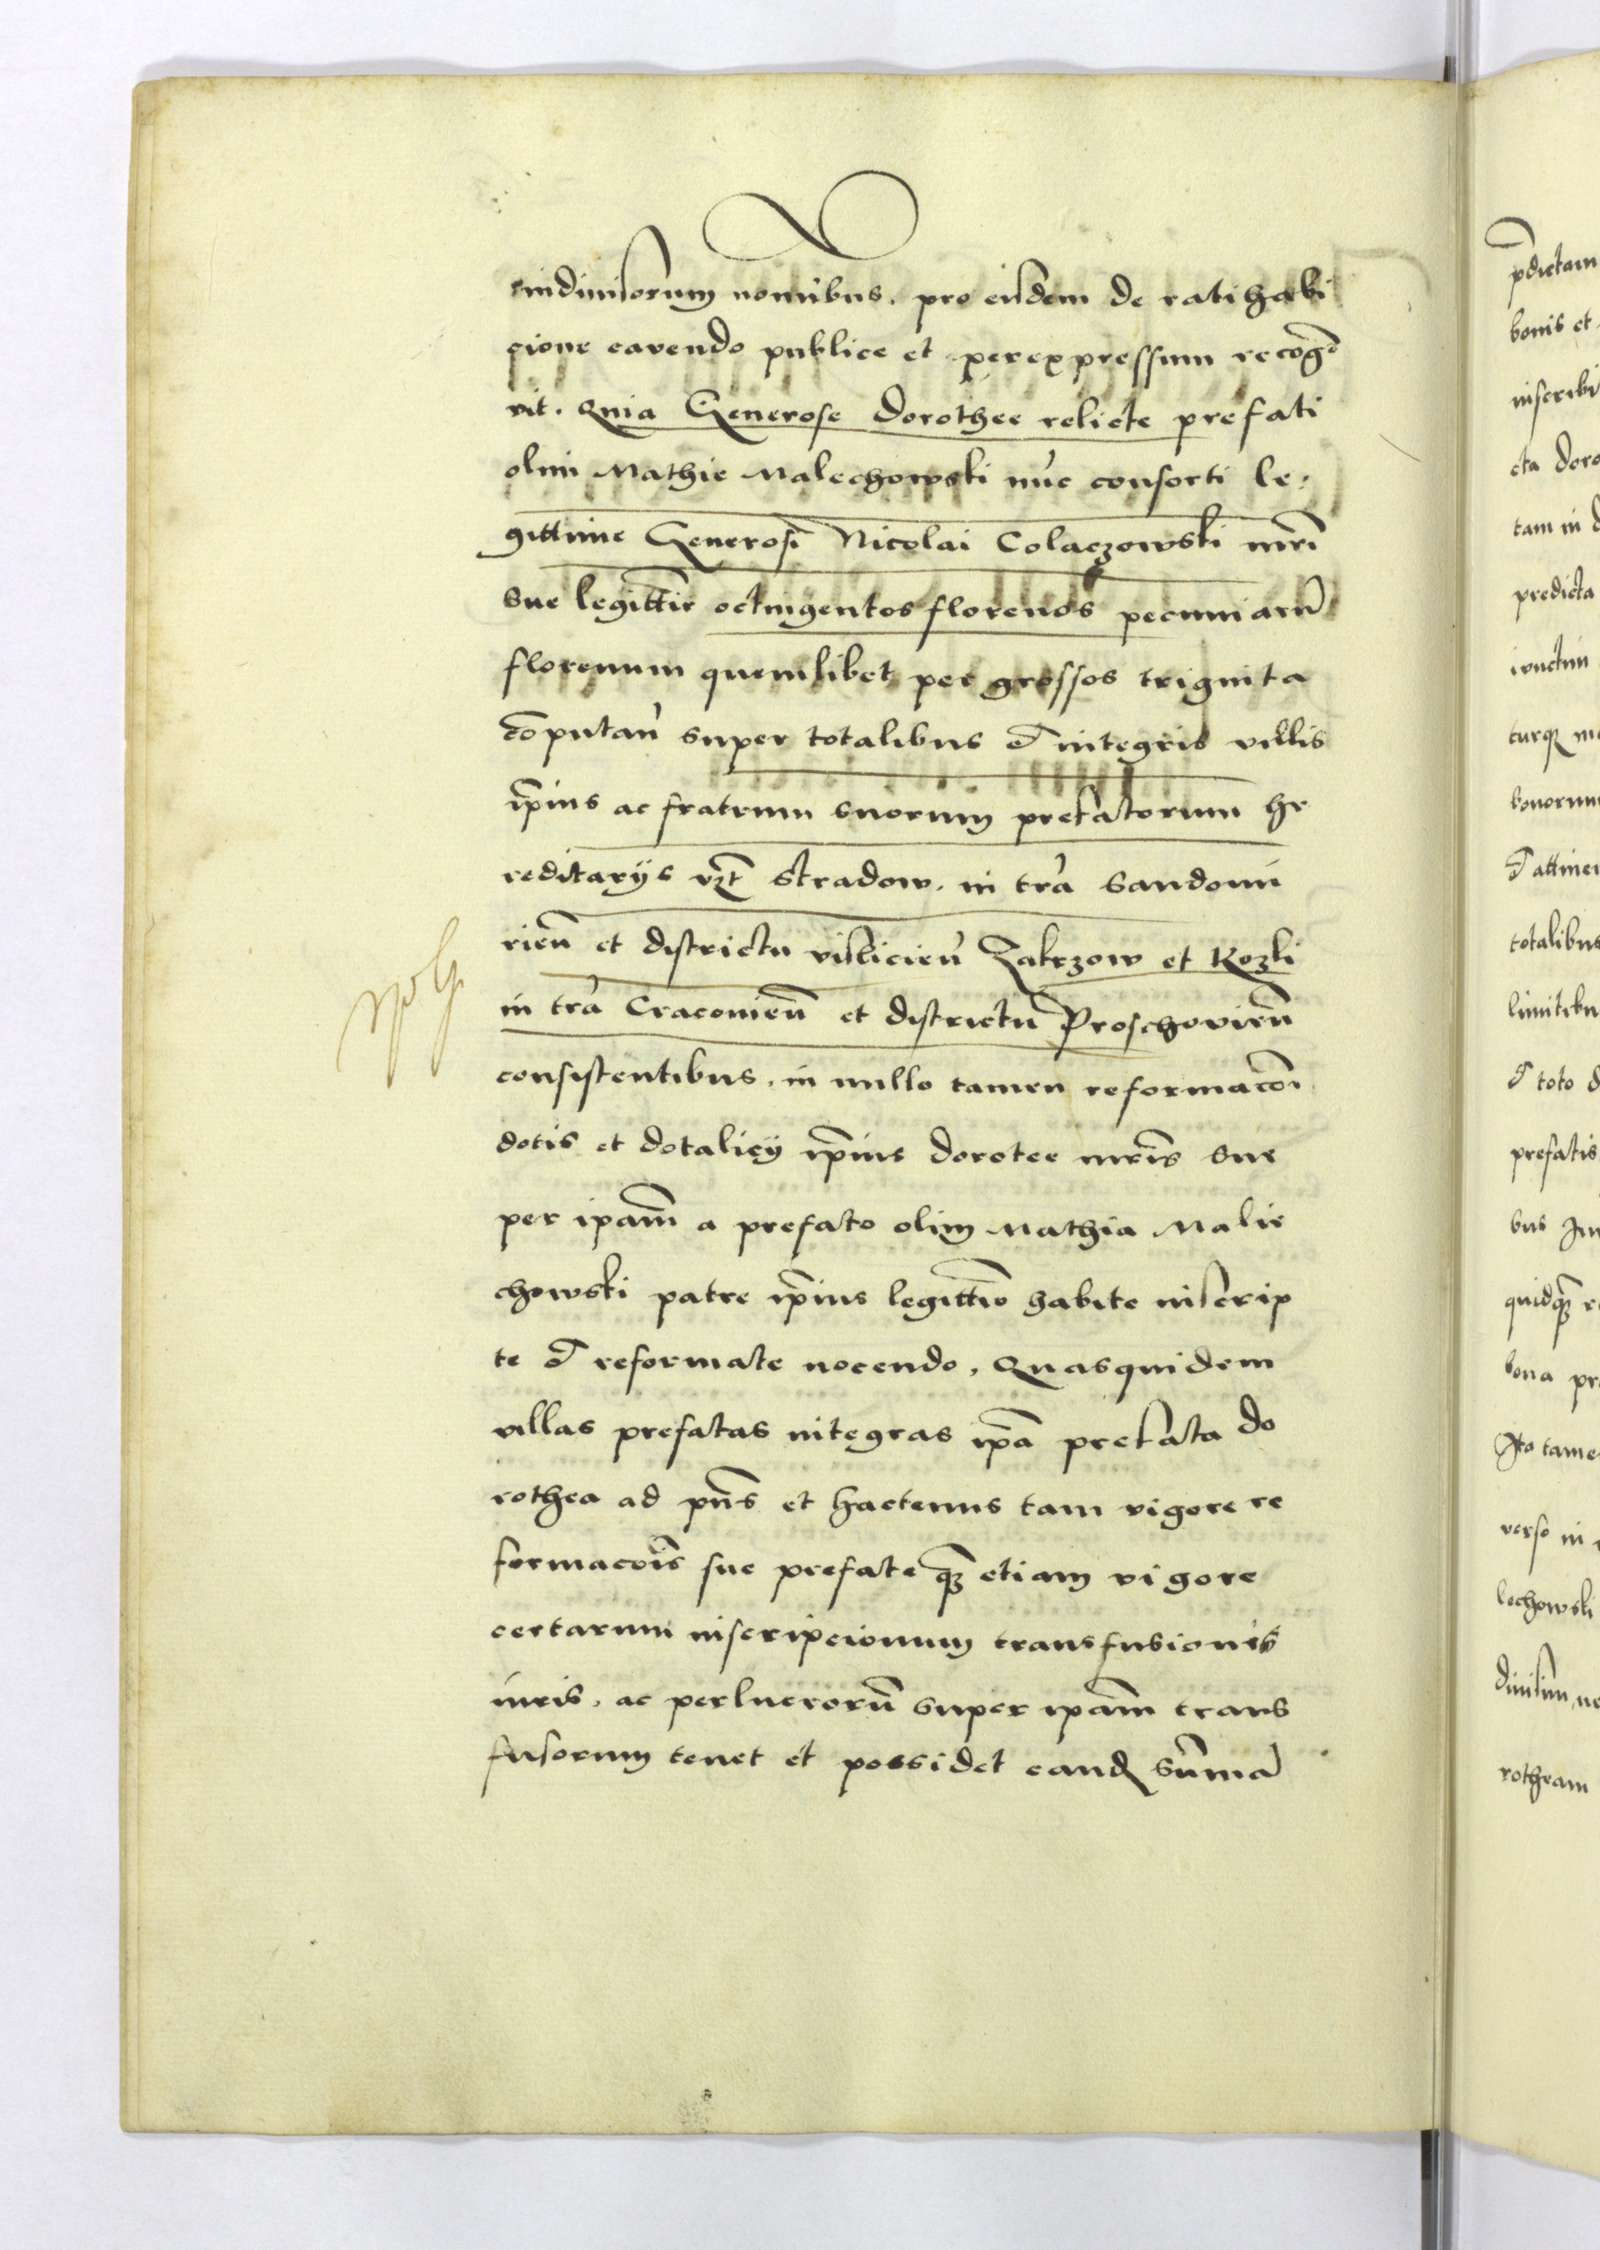 indiuisorum nominibus. pro eisdem de ratihabi
cione cavendo publice et per expressum recog̃o
vit. Quia Generose Dorothee relicte prefati
olim Mathie Malechowski nũc consorti le-
gittime Generosi Nicolai Colaczowski mr̃i
sue legittĩe octingentos florenos pecuniarũ
florenum quemlibet per grossos triginta
cõputan̄ super totalibus et integris villis
ip̃ius ac fratrum suorum prefatorum he
reditarijs vz̃t Stradow. in tr̃a Sandomi
rien̄ et districtu vislicien̄ Zakrzow et Kozki
in tr̃a Cracovien̄ et districtu Proschovien̄
consistentibus. in nullo tamen reformacõi
dotis et dotalicij ip̃ius Dorotee mr̃is sue
per ip̃am a prefato olim Mathia Malie
chowski patre ip̃ius legittĩo habite inscrip
te et reformate nocendo. Quasquidem
villas prefatas integras ip̃a prefata Do
rothea ad pñs et hactenus tam vigore re
formacõis sue prefate q̃ etiam vigore
certarum inscripcionum transfusionis
iuris. ac perlucrorũ super ip̃am trans
fusorum tenet et possidet eand̃ sum̃a
p̃dictam
bonis et
inscribi
cta Doro
tam in d
predicta
iunctim
turq̃ mo
bonorum
et attinen
totalibus
limitibu
et toto d
prefatis
bus Iur
quidq̃ re
bona pre
Ita tame
verso in
lechowski
diuisim, ne
rotheam